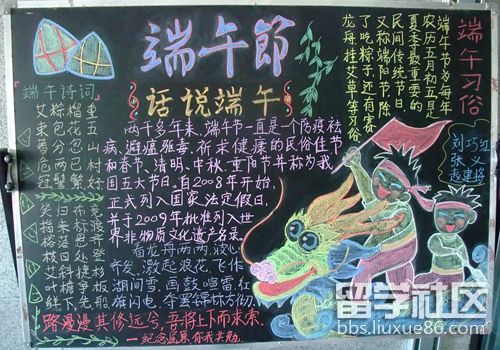 端午節
话说端午
端午习俗
端午节为每年
农历五月初五是
夏季最重要的
民间传统节日
又称端阳节.除
了吃粽子还有赛
龙舟,挂艾草等习俗
刘巧红
张义
赵建将
端午诗词
重五山村好
榴花忽已繁
粽包分两髻
艾束著危冠
两千多年来,端午节一直是个防疫祛
病、避瘟驱毒、祈求健康的民俗佳节
和春节、清明、中秋、重阳节并称为我
国五大节日。自2008年开始,
正式列入国家法定假日,
并于2009年批准列入世
界非物质文化遗产名录。
看龙舟两两波心
齐发,激起浪花飞作
湖间雪.画鼓喧雷,红
旗闪电,夺罢锦标方彻.
路漫漫其修远兮,吾将上下而求索.
—纪念屈原 你我共勉.
留学社区
bbs.liuxue86.com